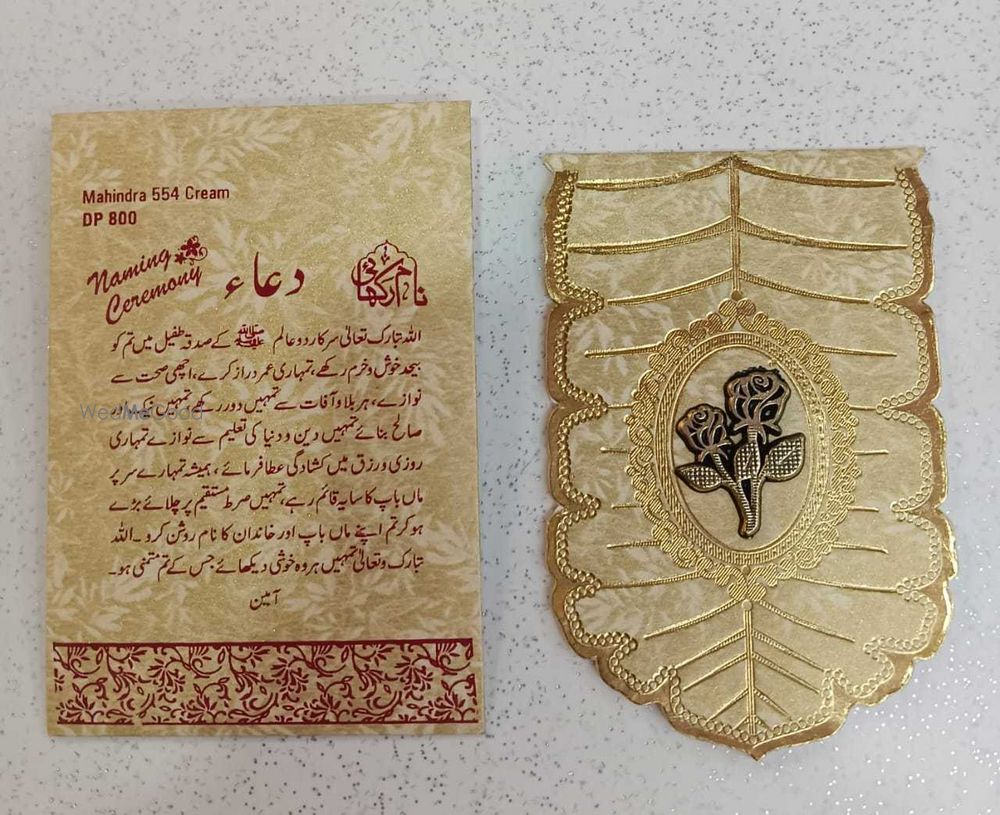 Mahindra 554 Cream
DP 800
Naming
Ceremony
دعاء
نام رکھائی
اللہ تبارک تعالیٰ سرکار دو عالم ﷺ کے صدقہ طفیل میں تم کو
بیحد خوش و خرم رکھے، تمہاری عمر دراز کرے، اچھی صحت سے
نوازے، ہر بلا و آفات سے تمہیں دور رکھے تمہیں نیک اور
صالح بنائے تمہیں دین و دنیا کی تعلیم سے نوازے تمہاری
روزی و رزق میں کشادگی عطا فرمائے، ہمیشہ تمہارے سر پر
ماں باپ کا سایہ قائم رہے، تمہیں صرط مستقیم پر چلائے بڑے
ہو کر تم اپنے ماں باپ اور خاندان کا نام روشن کرو۔ اللہ
تبارک و تعالیٰ تمہیں ہر وہ خوشی دیکھائے جس کے تم متمنی ہو۔
آمین
WedMeGood